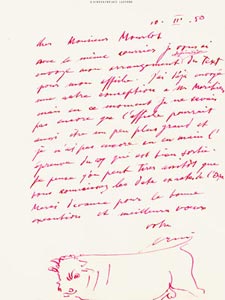 10. III. 50
Cher Monsieur Mourlot
avec le même courrier je vous ai
envoyé mon arrangement du Text
pour mon affiche. J'ai déjà envoyé
une autre conception a
mais en ce moment je ne savais
pas encore que l'affiche pourrait
aussi être un peu plus grand et
je n'ai pas encore eu en main l'
épreuve du que est bien sortie.
Je pense qu'on peut tirer aussitôt que
vous connaissez les date exactes
Merci d'avance pour la bonne
exécution et meilleurs voeux
votre